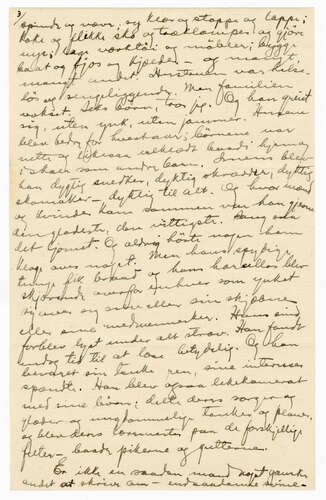 3/
spinde og væve; sy klær og stoppe og lappe;
koke og flikke sko og træklamper og gjøre
nye; lage verktøi og møbler; bygge
baat og fjos og kjelder — og mangt,
mangt andet. Hustruen var helse-
løs og sengeliggende. Men familien
vokset. Seks børn, tror jeg. Og han greiet
sig, uten ynk, uten jammer. Husene
blev bedre for hvert aar; børnene var
nette og tækkelig klædt baade hjemme
i skole som andre barn. Imens blev
han dygtig snedker, dyktig skrædder, dyktig
skomaker — dyktig til alt. Og hvor mænd
og kvinder kom sammen var han gjerne
den gladeste, den vittigste. Sang og
det tjonst. Og aldrig hørte nogen ham
klage over noget. Men hans spybige
tunge fik brand og hans harselløs blev
skjærende overfor enhver som ynket
sig over sig selv eller sin skjæbne
eller sine medmennesker. Hans sind
forblev lyst under alt strævet. Han fandt
endog tid til at læse betydelig. Og han
bevaret sin tanke ren, sine interesser
spændte. Han blev ogsaa lekekamerat
med sine børn; delte deres sorger og
glæder og ungdommelige tanker og planer,
og blev deres læremester paa de forskjellige
felter — baade pikerne og gutterne.
Er ikke en saadan mand noget ganske
andet at skrive om — end saadanne svine-